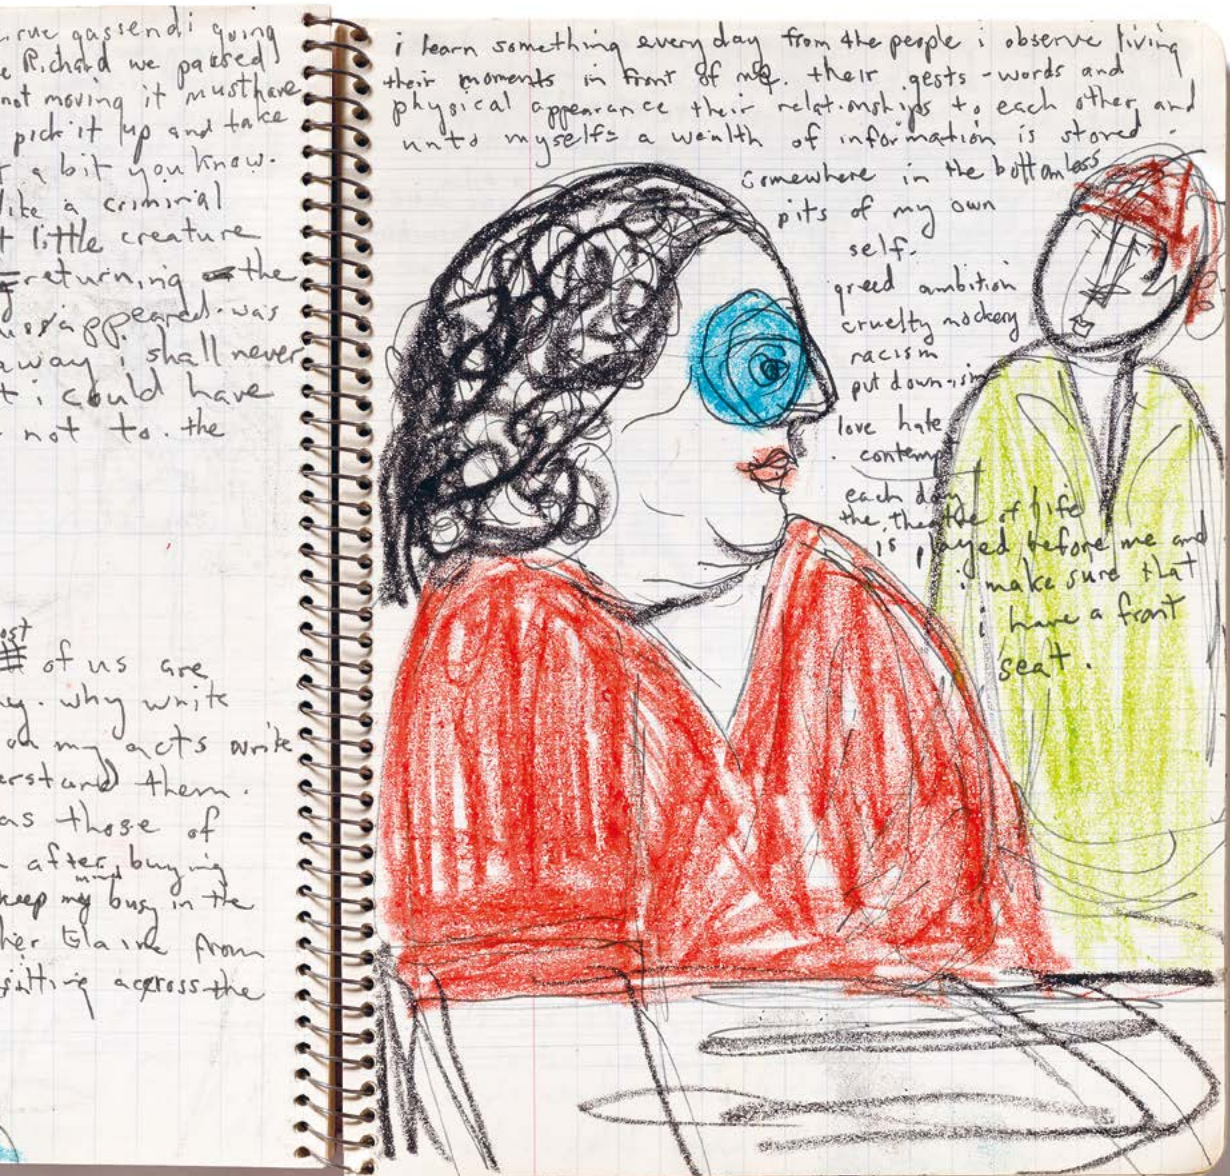 rue gassendi going
Richard we passed
not moving it musthave
pick it up and take
a bit you know.
like a criminal
little creature
returning the
disappeared. was
away i shall never
i could have
not to. the
of us are
why write
my acts write
them.
as those of
after buying
keep my mind busy in the
Elaine from
sitting across the
i learn something every day from the people i observe living
their moments in front of me. their gests - words and
physical appearance their relationships to each other and
unto myself = a wealth of information is stored
somewhere in the bottomless
pits of my own
self.
greed ambition
cruelty mockery
racism
put down-ism
love hate
contemp
each day
the theatre of life
is played before me and
i make sure that
i have a front
seat.